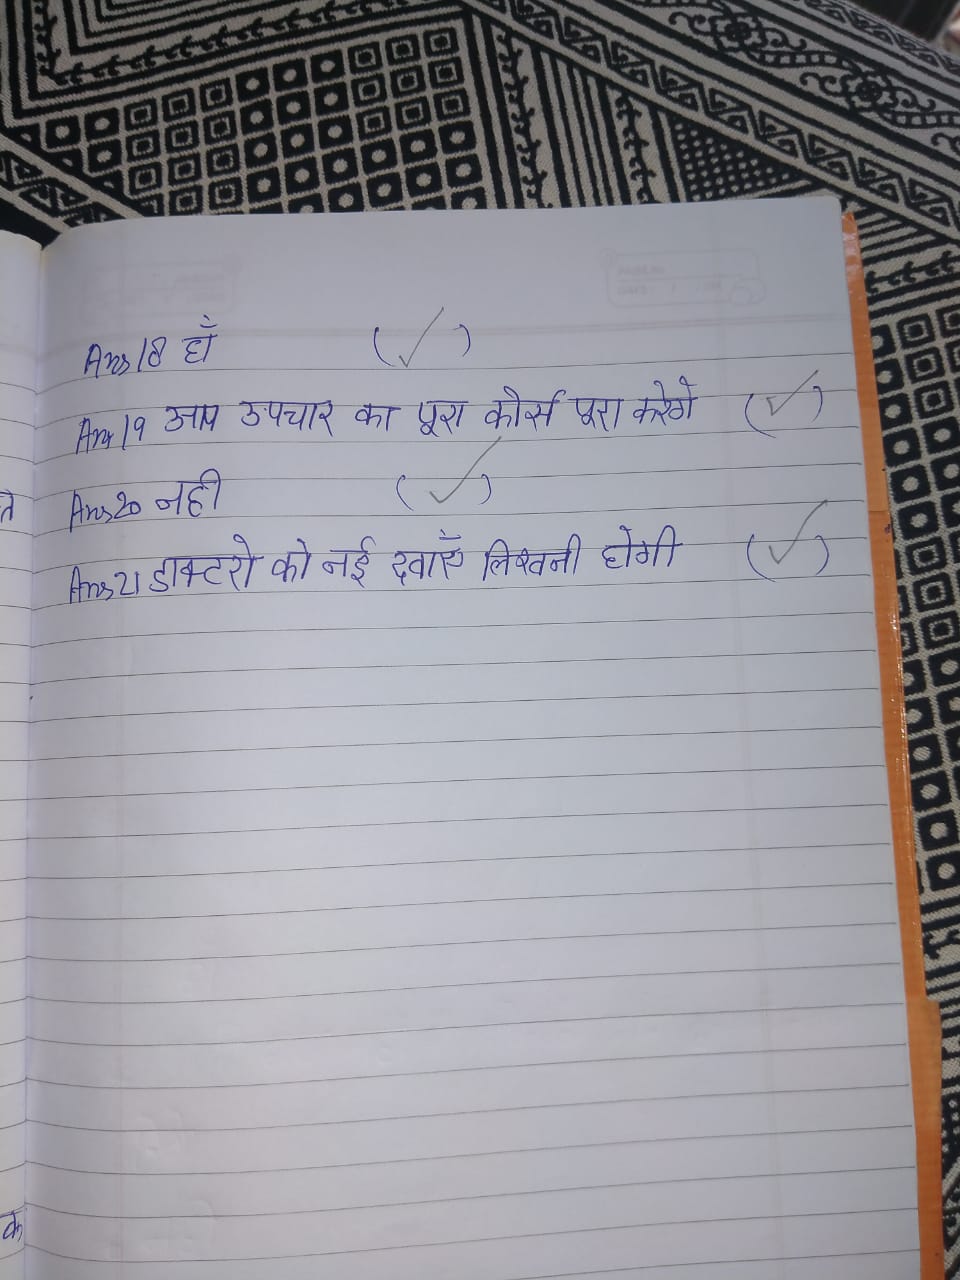 Ans 18 हाँ (✓)
Ans 19 आप उपचार का पूरा कोर्स पूरा करेगे (✓)
Ans 20 नही (✓)
Ans 21 डाक्टरो को नई दवाएँ लिखनी होगी (✓)
ते
के